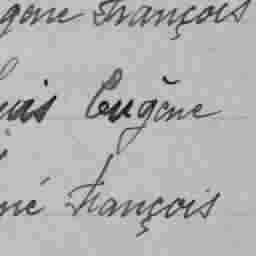 gène François
uis Eugène
né François